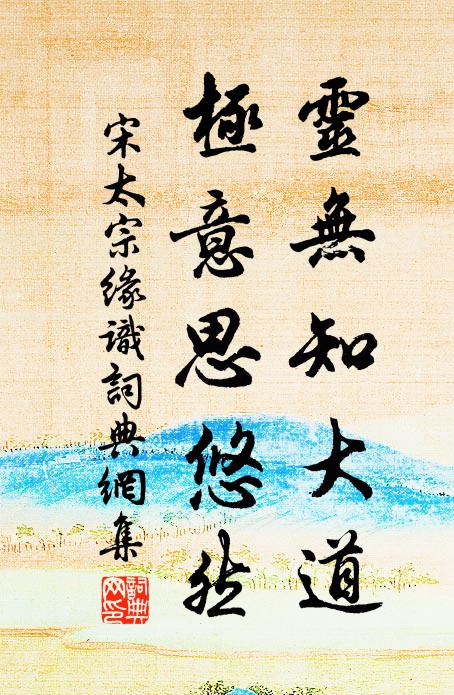 靈無知大道
極意思悠然
宋太宗緣識詞典網集
詞典网印